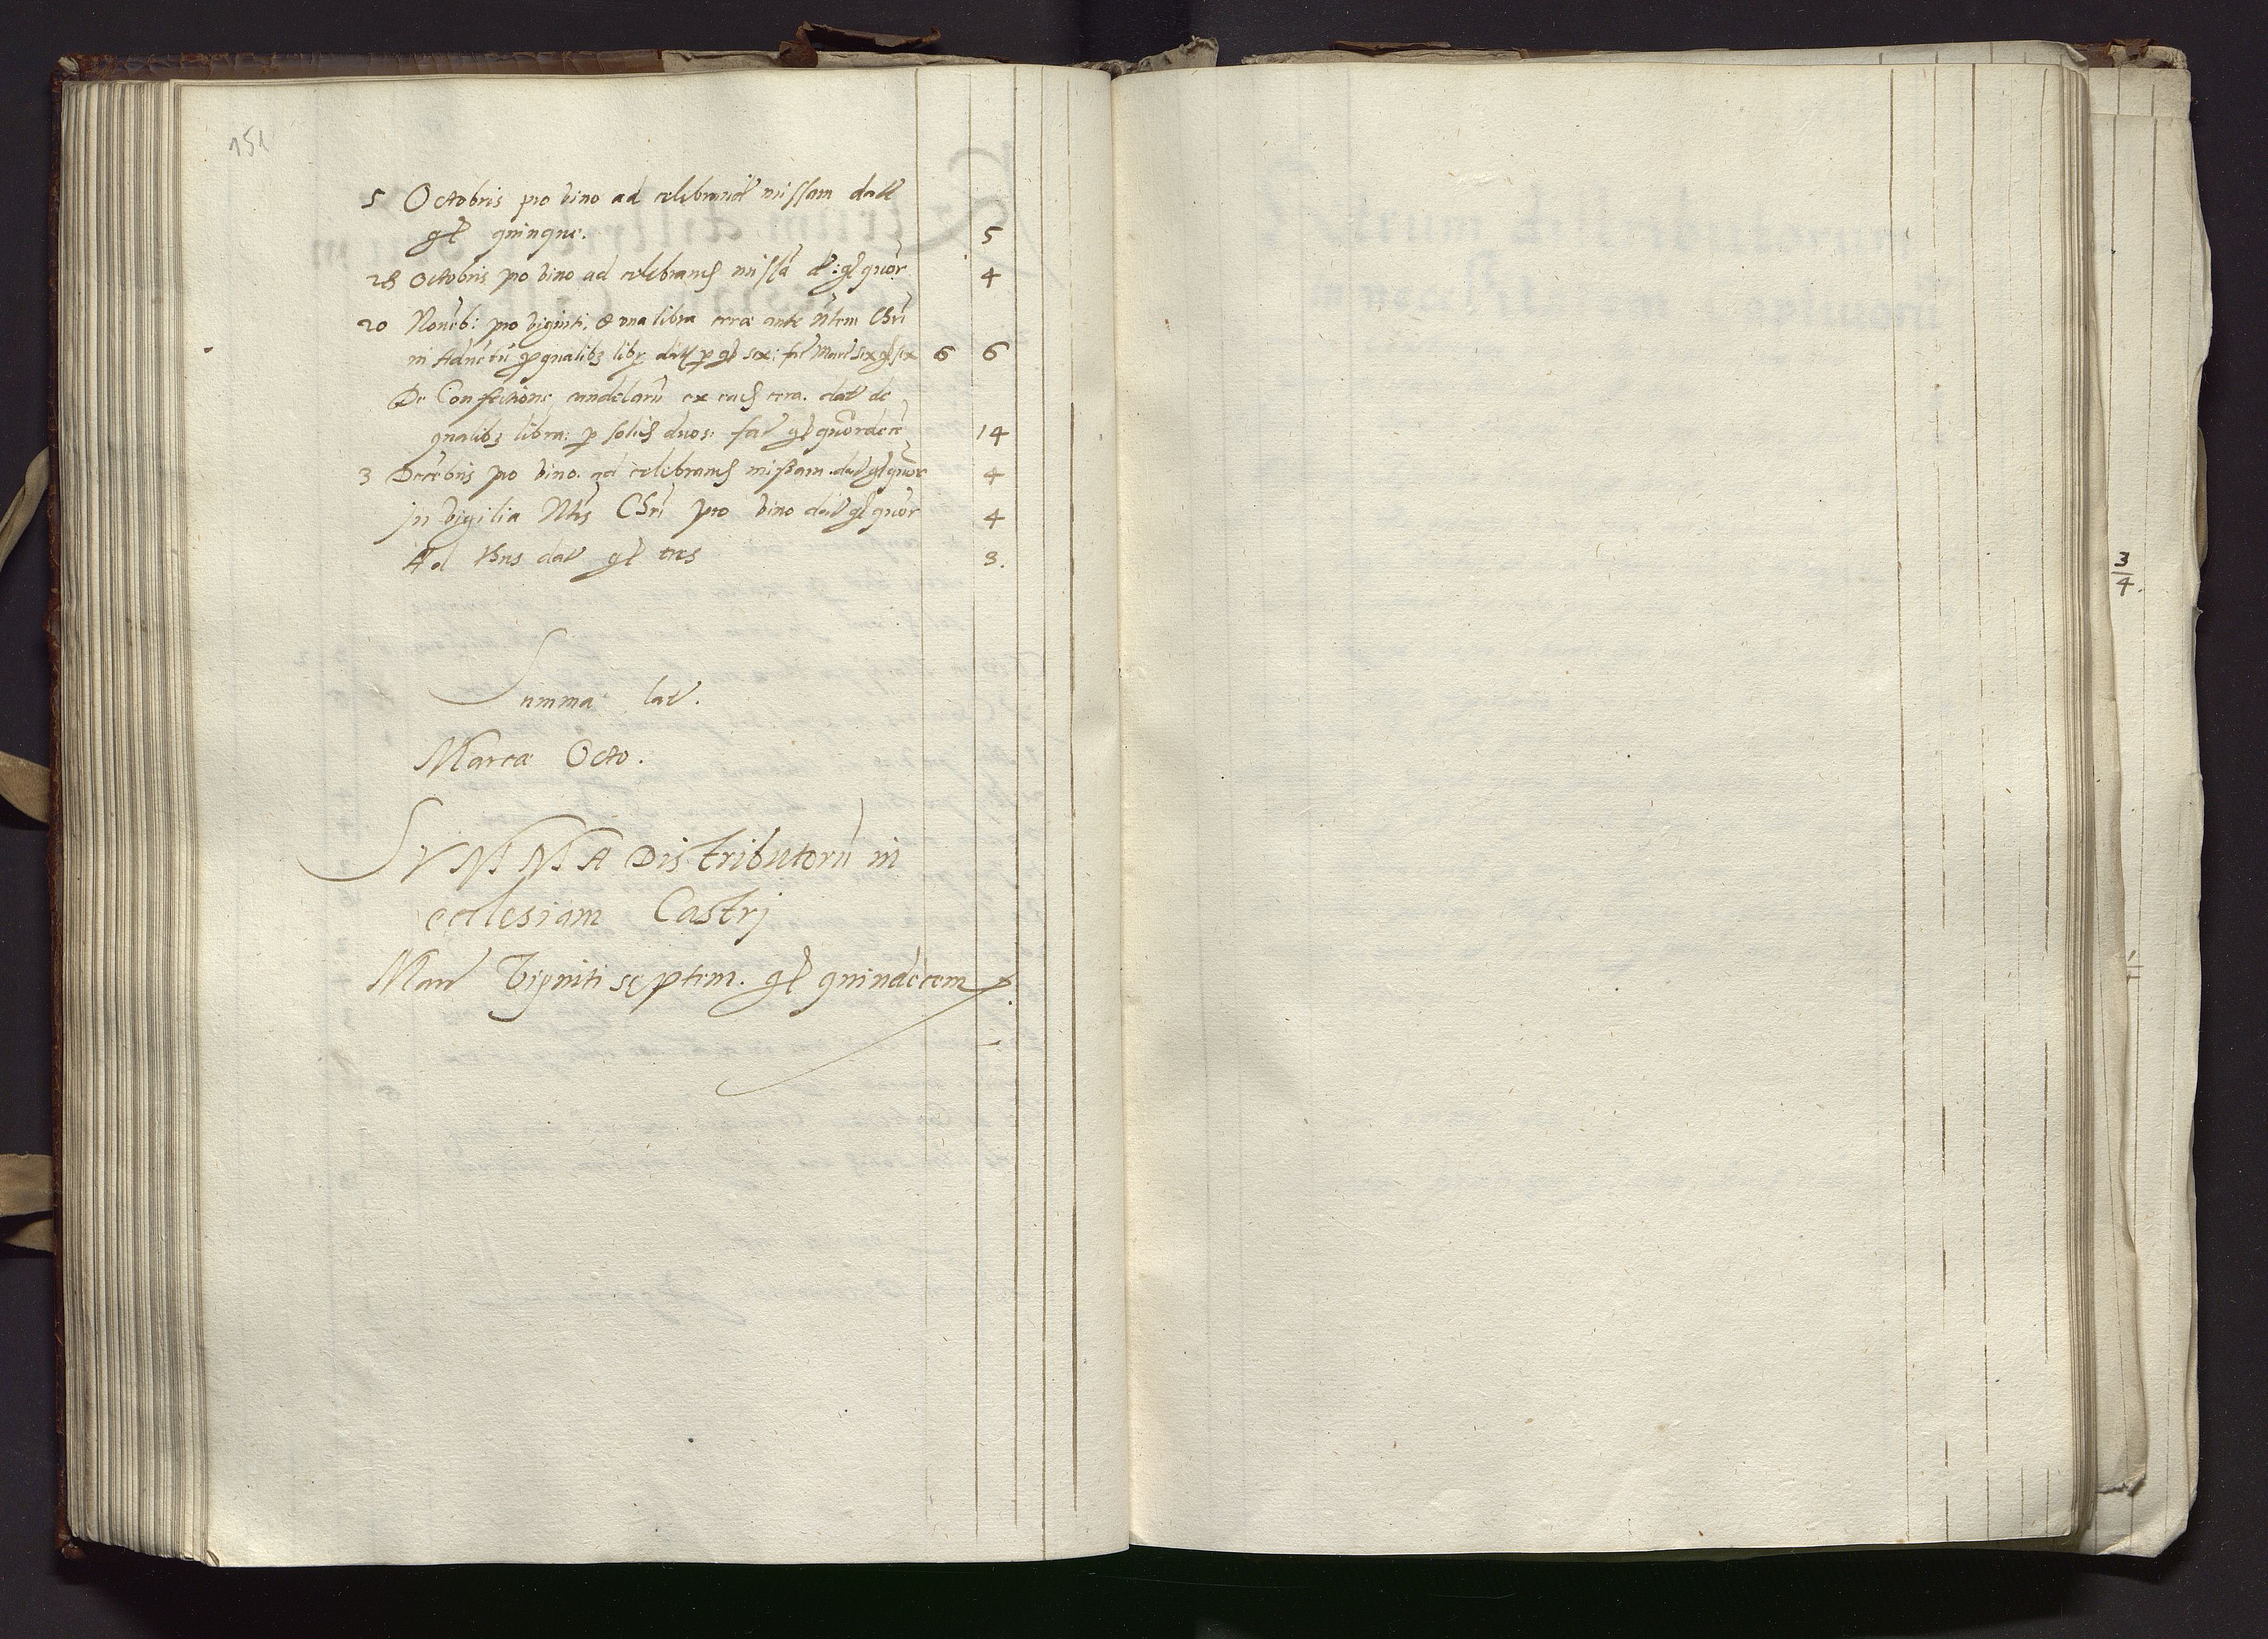 151
5 Octobris pro vino ad celebrand missam datt
gl quinque. 5
28 Octobris pro vino ad celebrand missā dt: gl quor 4
20 Nouēb: pro viginti & vna libra cerae ante Nłem Chrī
in Aduētū p qualibz libr datt p gl sex: fat Marc sex gl sex 6 6
De Confectione candelarū ex ead cera. datt de
qualibz libra: p solid duos: fat gl quordecē 14
3 Decēbris pro vino. ad celebrand missam. datt gl quor 4
In vigilia Ntis Chrī pro vino dat gl quor 4
Ad vsus datt gl tres 3.
Summa lat.
Marcae Octo.
SVMMA Distributorū in
ecclesiam Castrj
Marc Viginti septem. gl quindecem
3
4.